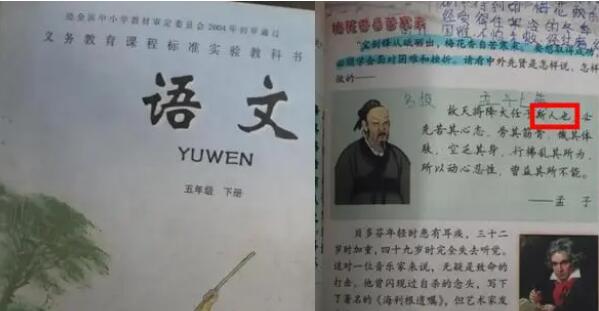 经全国中小学教材审定委员会2004年初审通过
义务教育课程标准实验教科书
语文
YUWEN
五年级 下册
梅花香自苦寒来
“宝剑锋从砥砺出，梅花香自苦寒来。”要想取得成功
必须学会面对困难和挫折。请看中外先贤是怎样说、怎样
做的——
故天将降大任于斯人也 必
先苦其心志，劳其筋骨，饿其体
肤，空乏其身，行拂乱其所为，
所以动心忍性，曾益其所不能。
——孟 子
贝多芬年轻时患有耳疾，三十二
岁时加重，四十九岁时完全失去听觉。
这对一位音乐家来说，无疑是致命的
打击。他曾闪现过自杀的念头，写下
了著名的《海利根遗嘱》，但艺术家发